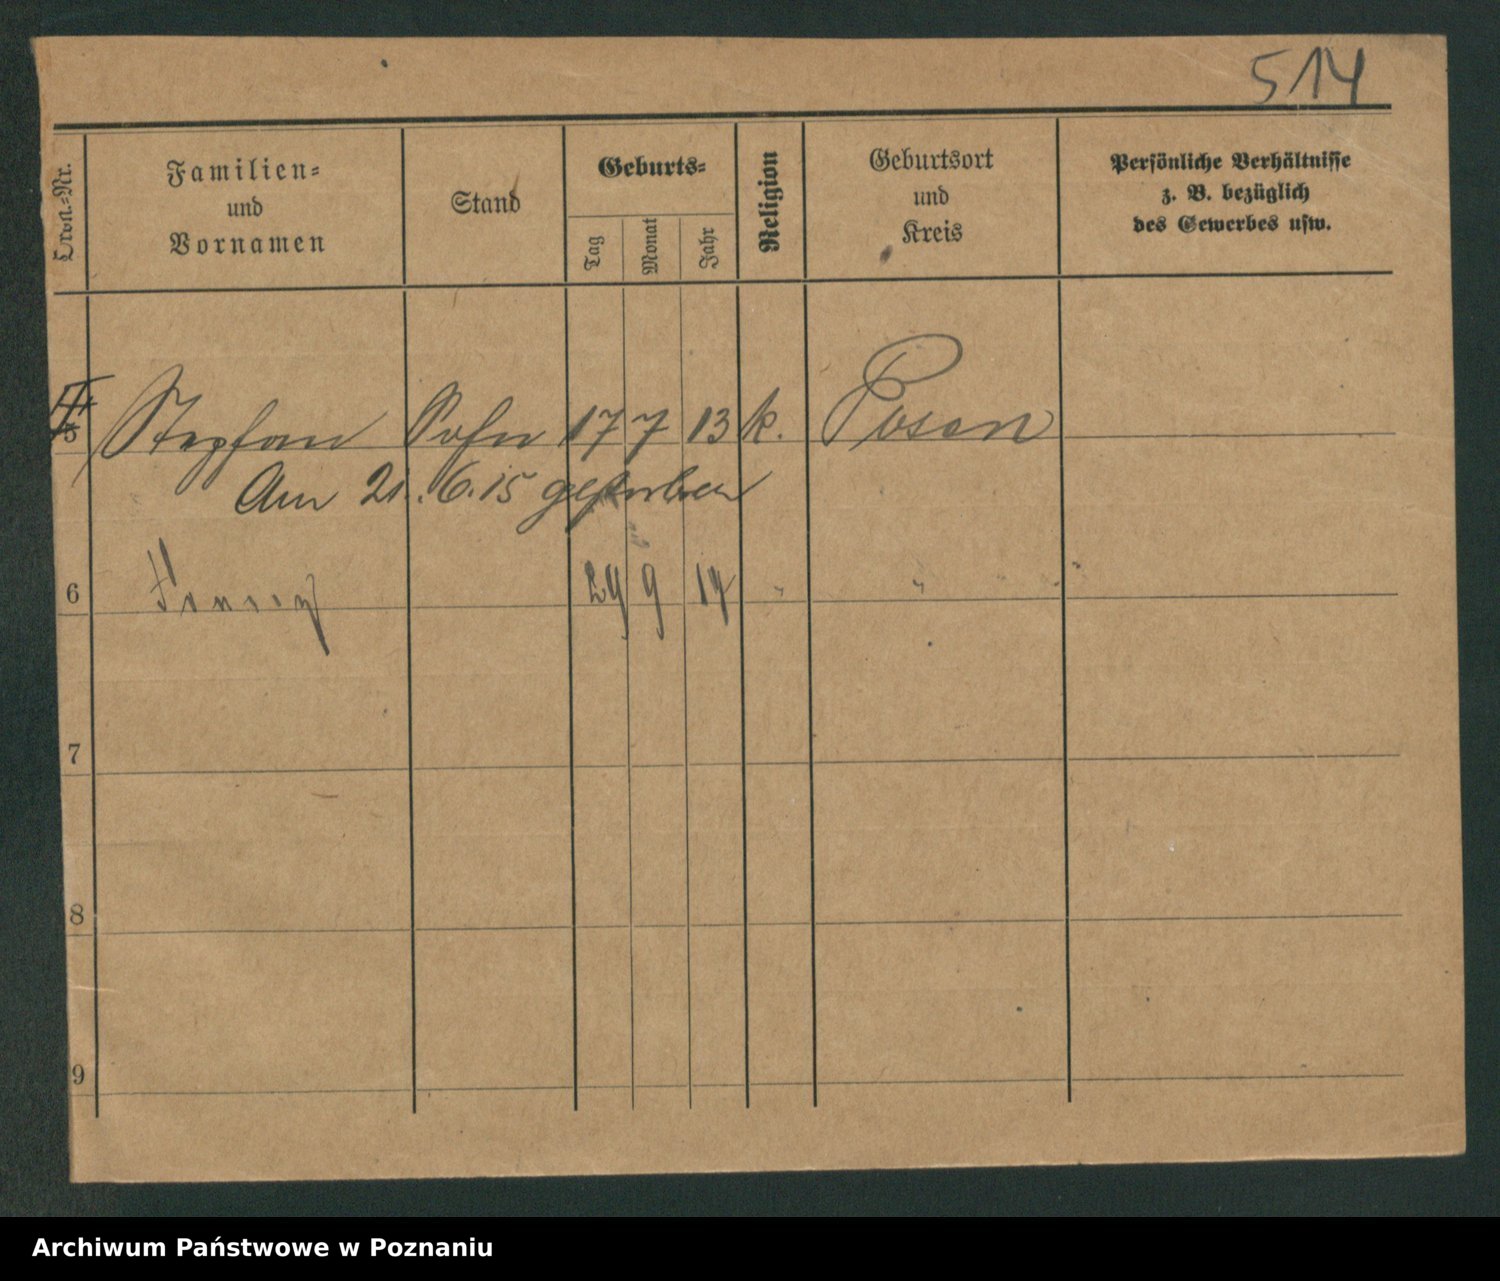 514
Ordn.-Nr.
Familien-
und
Vornamen
Stand
Geburts-
Tag
Monat
Jahr
Religion
Geburtsort
und
Kreis
Persönliche Verhältnisse
z. B. bezüglich
des Gewerbes usw.
5 Stephan Sohn 17 7 13 k. Posen
Am 21. 6. 15 gestorben
6 29 9 14 " " " "
7
8
9
Archiwum Państwowe w Poznaniu